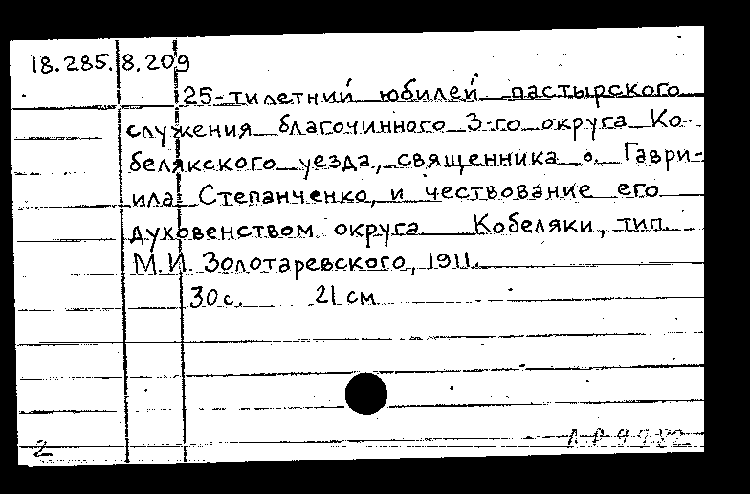 18.285.8.209
25-тилетний юбилей пастырского
служения благочинного 3-го округа Ко-
белякского уезда, священника о. Гаври-
ила Степанченко, и чествование его
духовенством округа Кобеляки, тип.
М.И. Золотаревского, 1911.
30 с. 21 см
2